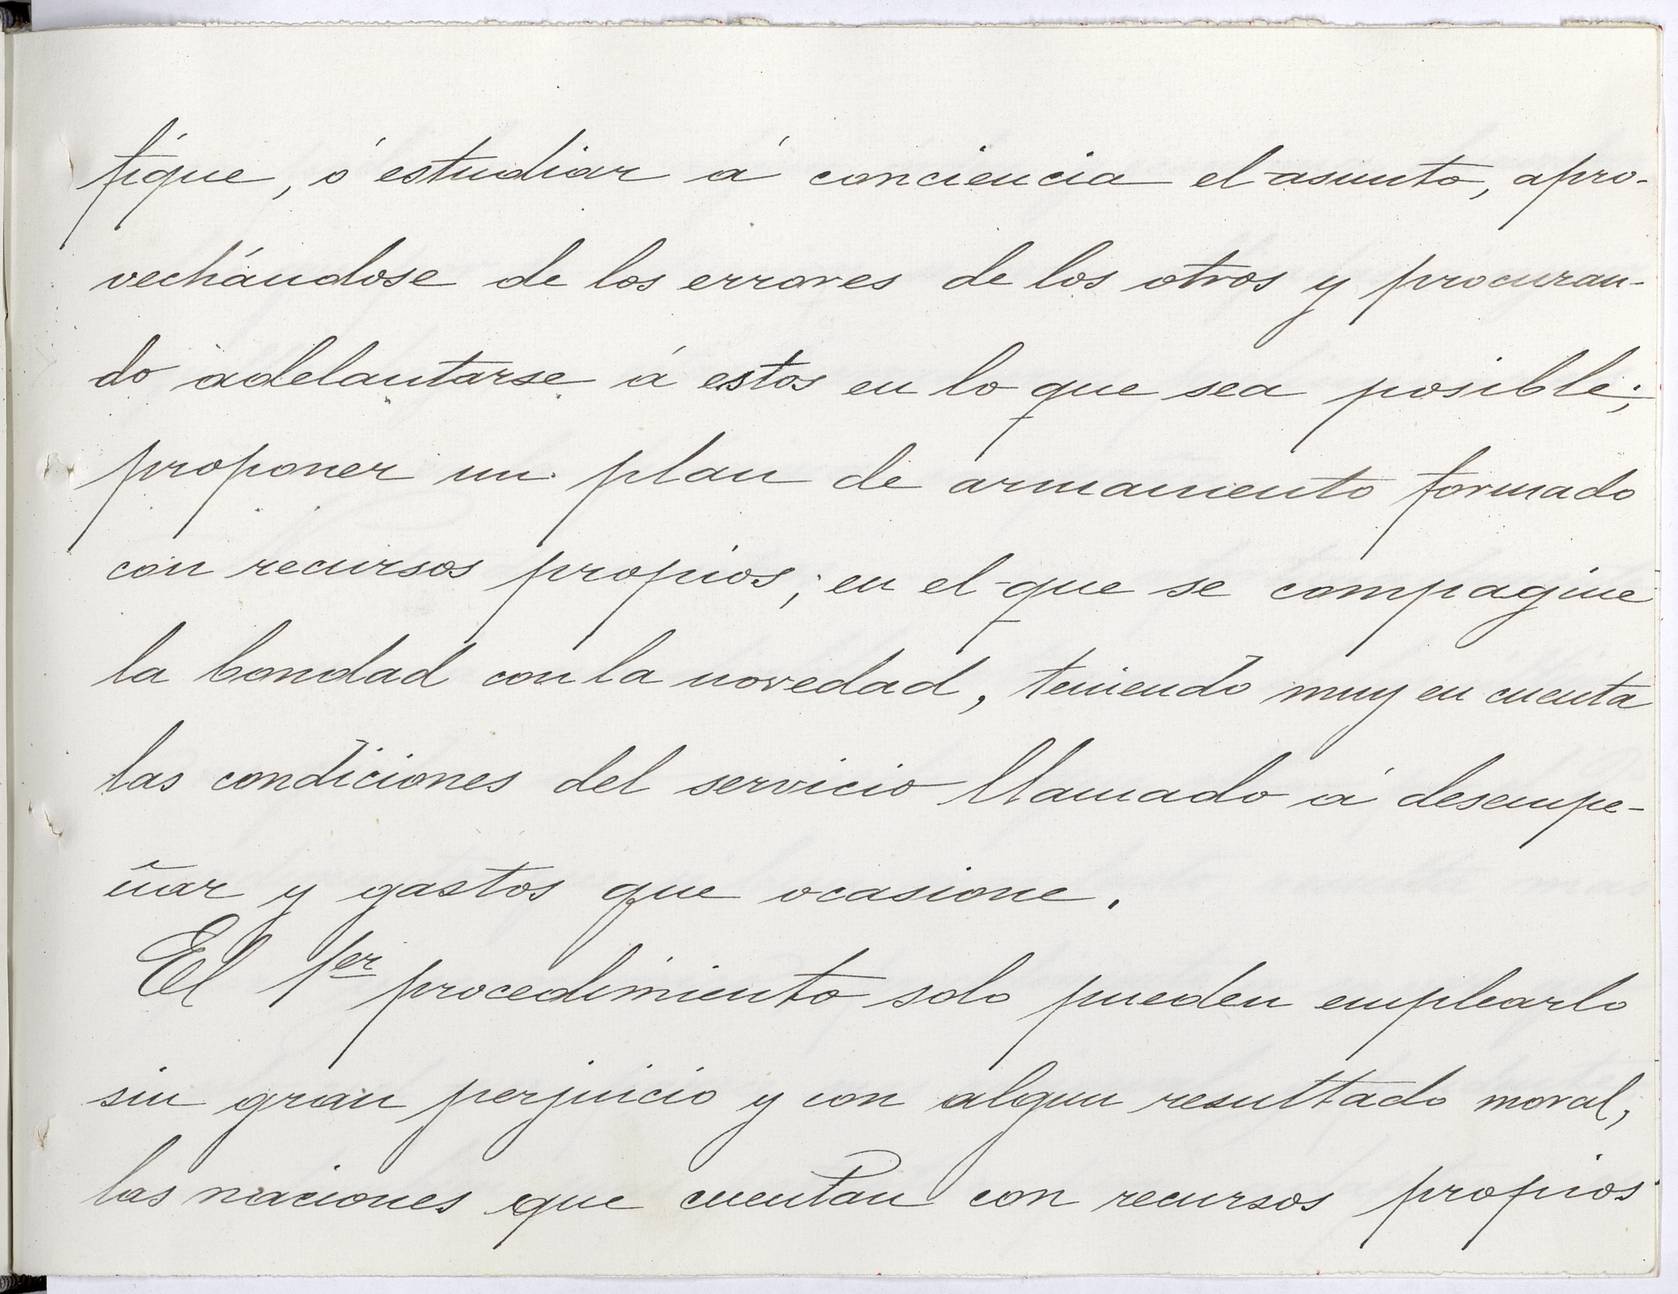 fique, ó estudiar á conciencia el asunto, apro-
vechándose de los errores de los otros y procuran-
do adelantarse á estos en lo que sea posible;
proponer un plan de armamento formado
con recursos propios; en el que se compagine
la bondad con la novedad, teniendo muy en cuenta
las condiciones del servicio llamado á desempe-
ñar y gastos que ocasione.
El 1er procedimiento solo pueden emplearlo
sin gran perjuicio y con algun resultado moral,
las naciones que cuentan con recursos propios